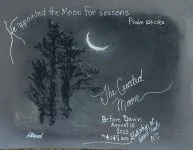 He appointed the Moon for seasons
Psalm 104:19a
The Created
Moon
Before Dawn
August 12
2023
4:45 am